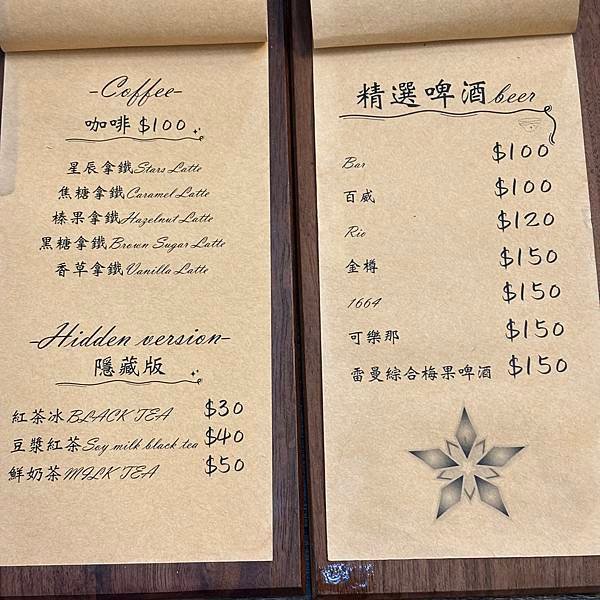 -Coffee-
咖啡 $100
星辰拿鐵Stars Latte
焦糖拿鐵Caramel Latte
榛果拿鐵Hazelnut Latte
黑糖拿鐵Brown Sugar Latte
香草拿鐵Vanilla Latte
-Hidden version-
隱藏版
紅茶冰BLACK TEA $30
豆漿紅茶Soy milk black tea $40
鮮奶茶MILK TEA $50
精選啤酒beer
Bar $100
百威 $100
Rio $120
金樽 $150
1664 $150
可樂那 $150
雷曼綜合梅果啤酒 $150